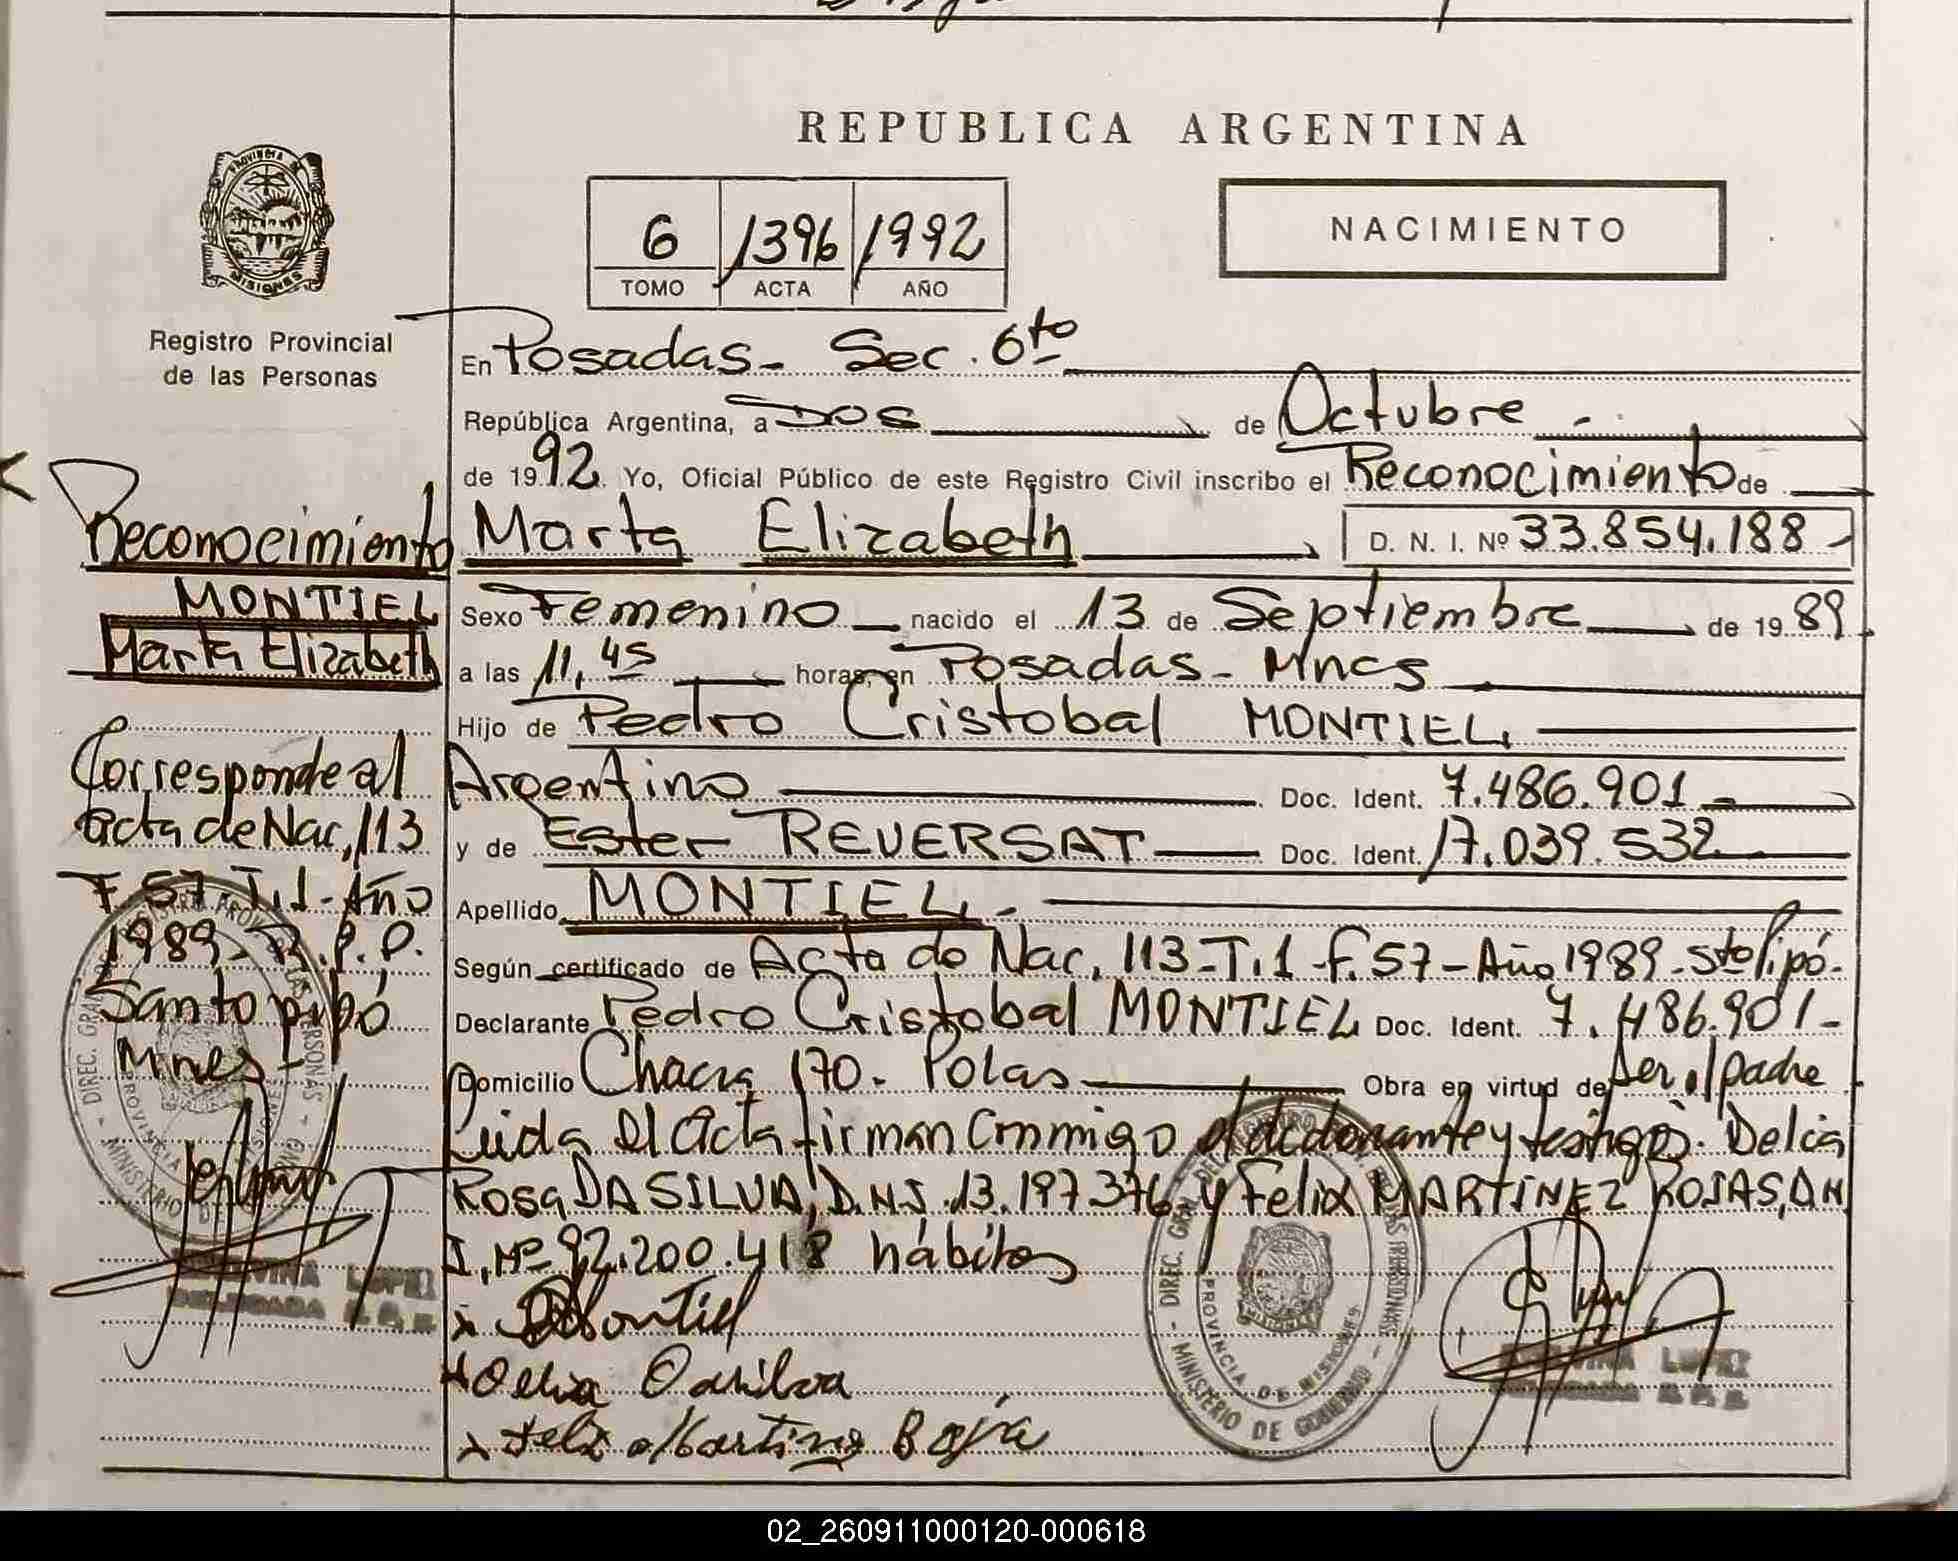 REPUBLICA ARGENTINA
PROVINCIA DE
MISIONES
Registro Provincial
de las Personas
6 1396 1992
TOMO ACTA AÑO
NACIMIENTO
En Posadas - Sec. 6to
República Argentina, a Dos de Octubre -.
de 1992. Yo, Oficial Público de este Registro Civil inscribo el Reconocimiento de
Marta Elizabeth D. N. I. Nº 33.854.188 -
Sexo Femenino nacido el 13 de Septiembre de 1989
a las 11,45 horas, en Posadas - Mncs
Hijo de Pedro Cristobal MONTIEL,
Argentino Doc. Ident. 7.486.901 -
y de Ester REVERSAT Doc. Ident. 17.039.532
Apellido MONTIEL, -
Según certificado de Acta de Nac, 113 - T.1 - F. 57 - Año 1989 - Sto Pipó -
Declarante Pedro Cristobal MONTIEL Doc. Ident. 7.486.901 -
Domicilio Chacra 170 - Polas Obra en virtud de ser el padre
Leida el acta firman Conmigo el y testigos. Delcia
Rosa DA SILVA, D.N.I. 13.197.376 y Felix MARTINEZ ROJAS, D.N.
I. Nº 92.200.418 hábiles
x Montiel
x Delia Dasilva
x Felix Martinez
Reconocimiento
MONTIEL
Marta Elizabeth
Corresponde al
acta de Nac, 113
F 57 T.1 - Año
1989 - R.P.P.
Santo pipó
Mnes -
DIREC. GRAL. DEL REGISTRO PROV. DE LAS PERSONAS
PROVINCIA DE MISIONES
MINISTERIO DE GOBIERNO
LOPEZ
DELEGADA R.P.P.
DIREC. GRAL. DEL REGISTRO PROV. DE LAS PERSONAS
PROVINCIA DE MISIONES
MINISTERIO DE GOBIERNO
LOPEZ
DELEGADA R.P.P.
02_260911000120-000618